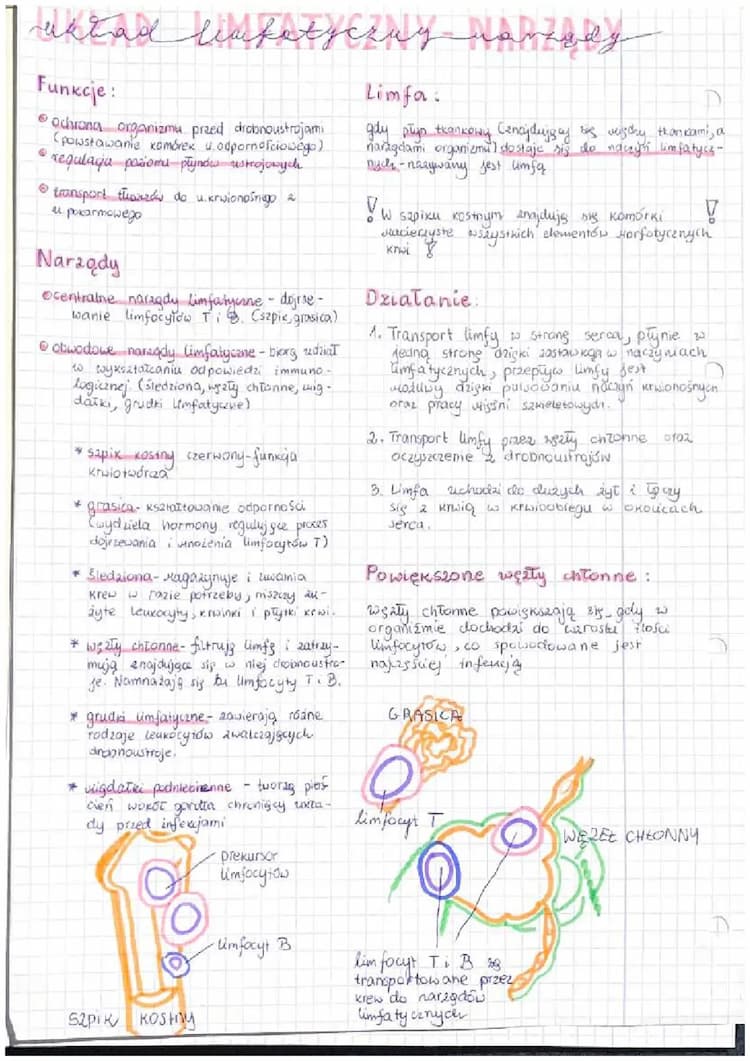 UKŁAD LIMFATYCZNY - NARZĄDY
układ limfatyczny - narządy
Funkcje:
ochrona organizmu przed drobnoustrojami
(powstawanie komórek u. odpornościowego)
regulacja poziomu płynów ustrojowych
transport tłuszczów do u. krwionośnego z
u. pokarmowego
Narządy
centralne narządy limfatyczne - dojrze-
wanie limfocytów T i B. (szpik, grasica)
obwodowe narządy limfatyczne - biorą udział
w wykształcaniu odpowiedzi immuno-
logicznej (śledziona, węzły chłonne, mig-
dałki, grudki limfatyczne)
* szpik kostny czerwony - funkcja
krwiotwórcza
* grasica - kształtowanie odporności
(wydziela hormony regulujące proces
dojrzewania i mnożenia limfocytów T)
* śledziona - magazynuje i uwalnia
krew w razie potrzeby, niszczy zu-
żyte leukocyty, krwinki i płytki krwi.
* węzły chłonne - filtrują limfę i zatrzy-
mują znajdujące się w niej drobnoustro-
je. Namnażają się tu limfocyty T i B.
* grudki limfatyczne - zawierają różne
rodzaje leukocytów zwalczających
drobnoustroje.
* migdałki podniebienne - tworzą pierś-
cień wokół gardła chroniący ukła-
dy przed infekcjami
prekursor
limfocytów
limfocyt B
SZPIK KOSTNY
Limfa:
gdy płyn tkankowy (znajdujący się między tkankami, a
narządami organizmu) dostaje się do naczyń limfatycz-
nych - nazywany jest limfą
! W szpiku kostnym znajdują się komórki !
macierzyste wszystkich elementów morfotycznych
krwi !
Działanie:
1. Transport limfy w stronę serca, płynie w
jedną stronę dzięki zastawką w naczyniach
limfatycznych, przepływ limfy jest
możliwy dzięki pulsowaniu naczyń krwionośnych
oraz pracy mięśni szkieletowych.
2. Transport limfy przez węzły chłonne oraz
oczyszczenie z drobnoustrojów
3. Limfa uchodzi do dużych żył i łączy
się z krwią w krwioobiegu w okolicach
serca.
Powiększone węzły chłonne:
węzły chłonne powiększają się, gdy w
organizmie dochodzi do wzrostu ilości
limfocytów, co spowodowane jest
najczęściej infekcją
GRASICA
limfocyt T
WĘZEŁ CHŁONNY
limfocyt T i B są
transportowane przez
krew do narządów
limfatycznych